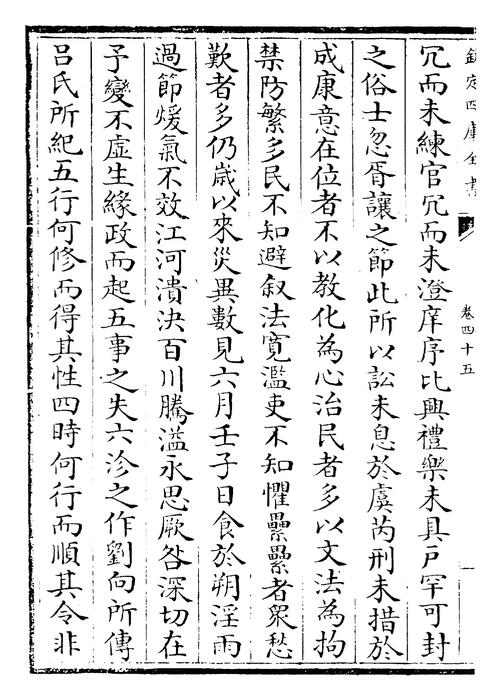 欽定四庫全書
卷四十五
冗而未練官冗而未澄庠序比興禮樂未具戸罕可封
之俗士忽胥讓之節此所以訟未息於虞芮刑未措於
成康意在位者不以教化為心治民者多以文法為拘
禁防繁多民不知避叙法寛濫吏不知懼纍纍者衆愁
歎者多仍嵗以來災異數見六月壬子日食於朔淫雨
過節煖氣不效江河潰決百川騰溢永思厥咎深切在
予變不虛生緣政而起五事之失六沴之作劉向所傳
吕氏所紀五行何修而得其性四時何行而順其令非